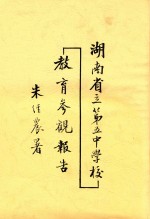 湖南省立第五中學校
教育參觀報告
朱經農署